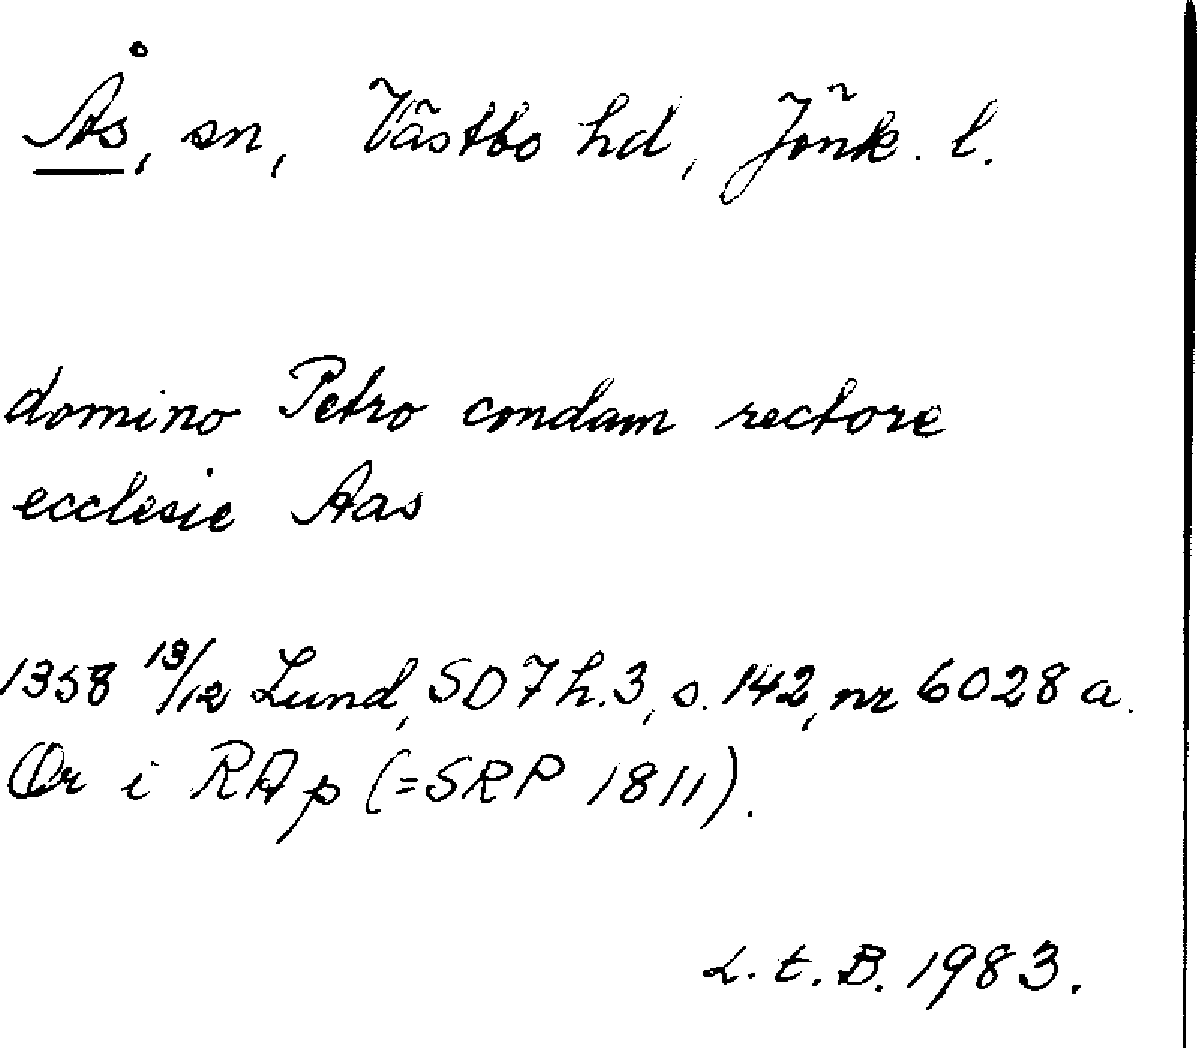 Ås, sn, Västbo hd, Jönk. l.
domino Petro condam rectore
ecclesie Aas
1358 13/12 Lund, SD 7 h. 3, s. 142, nr 6028 a.
Or i RAp (=SRP 1811).
L. t. B. 1983.